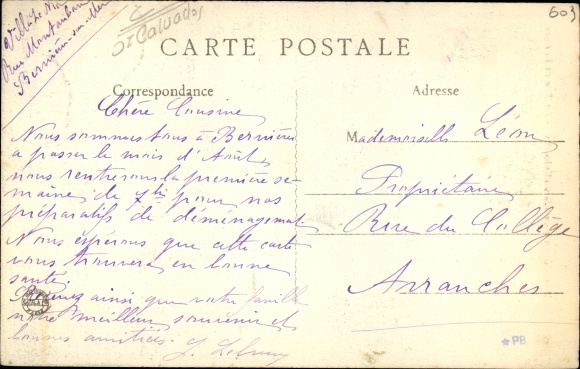 Villa
Rue Montauban
Bernières-sur-Mer
Dt Calvados
603
CARTE POSTALE
Correspondance
Adresse
Chère Cousine
Nous sommes tous à Bernières
a passer le mois d'Août
nous rentrerons la première se-
maine de 7bre pour nos
préparatifs de déménagement
Nous espérons que cette carte
vous trouvera en bonne
santé.
Recevez ainsi que votre famille
notre meilleur souvenir et
bonnes amitiés.
Mademoiselle Léon
Propriétaire
Rue du Collège
Avranches
PB